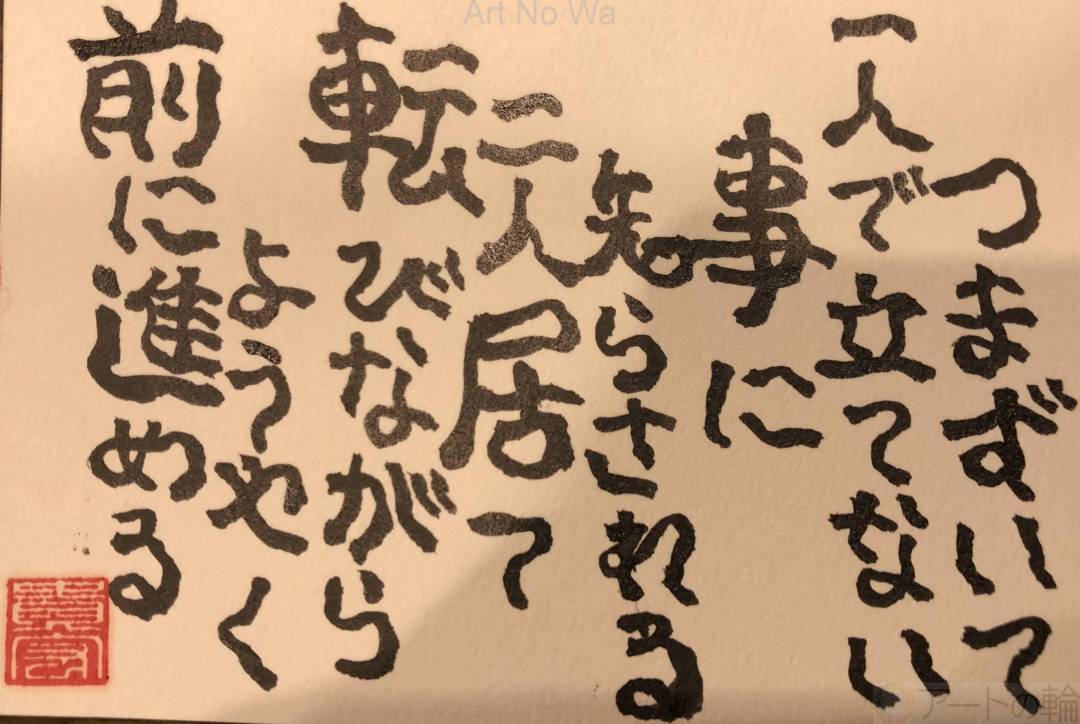 つまずいて
一人で立てない
事に
知らされる
二人居て
転びながら
ようやく
前に進める
Art No Wa
アートの輪